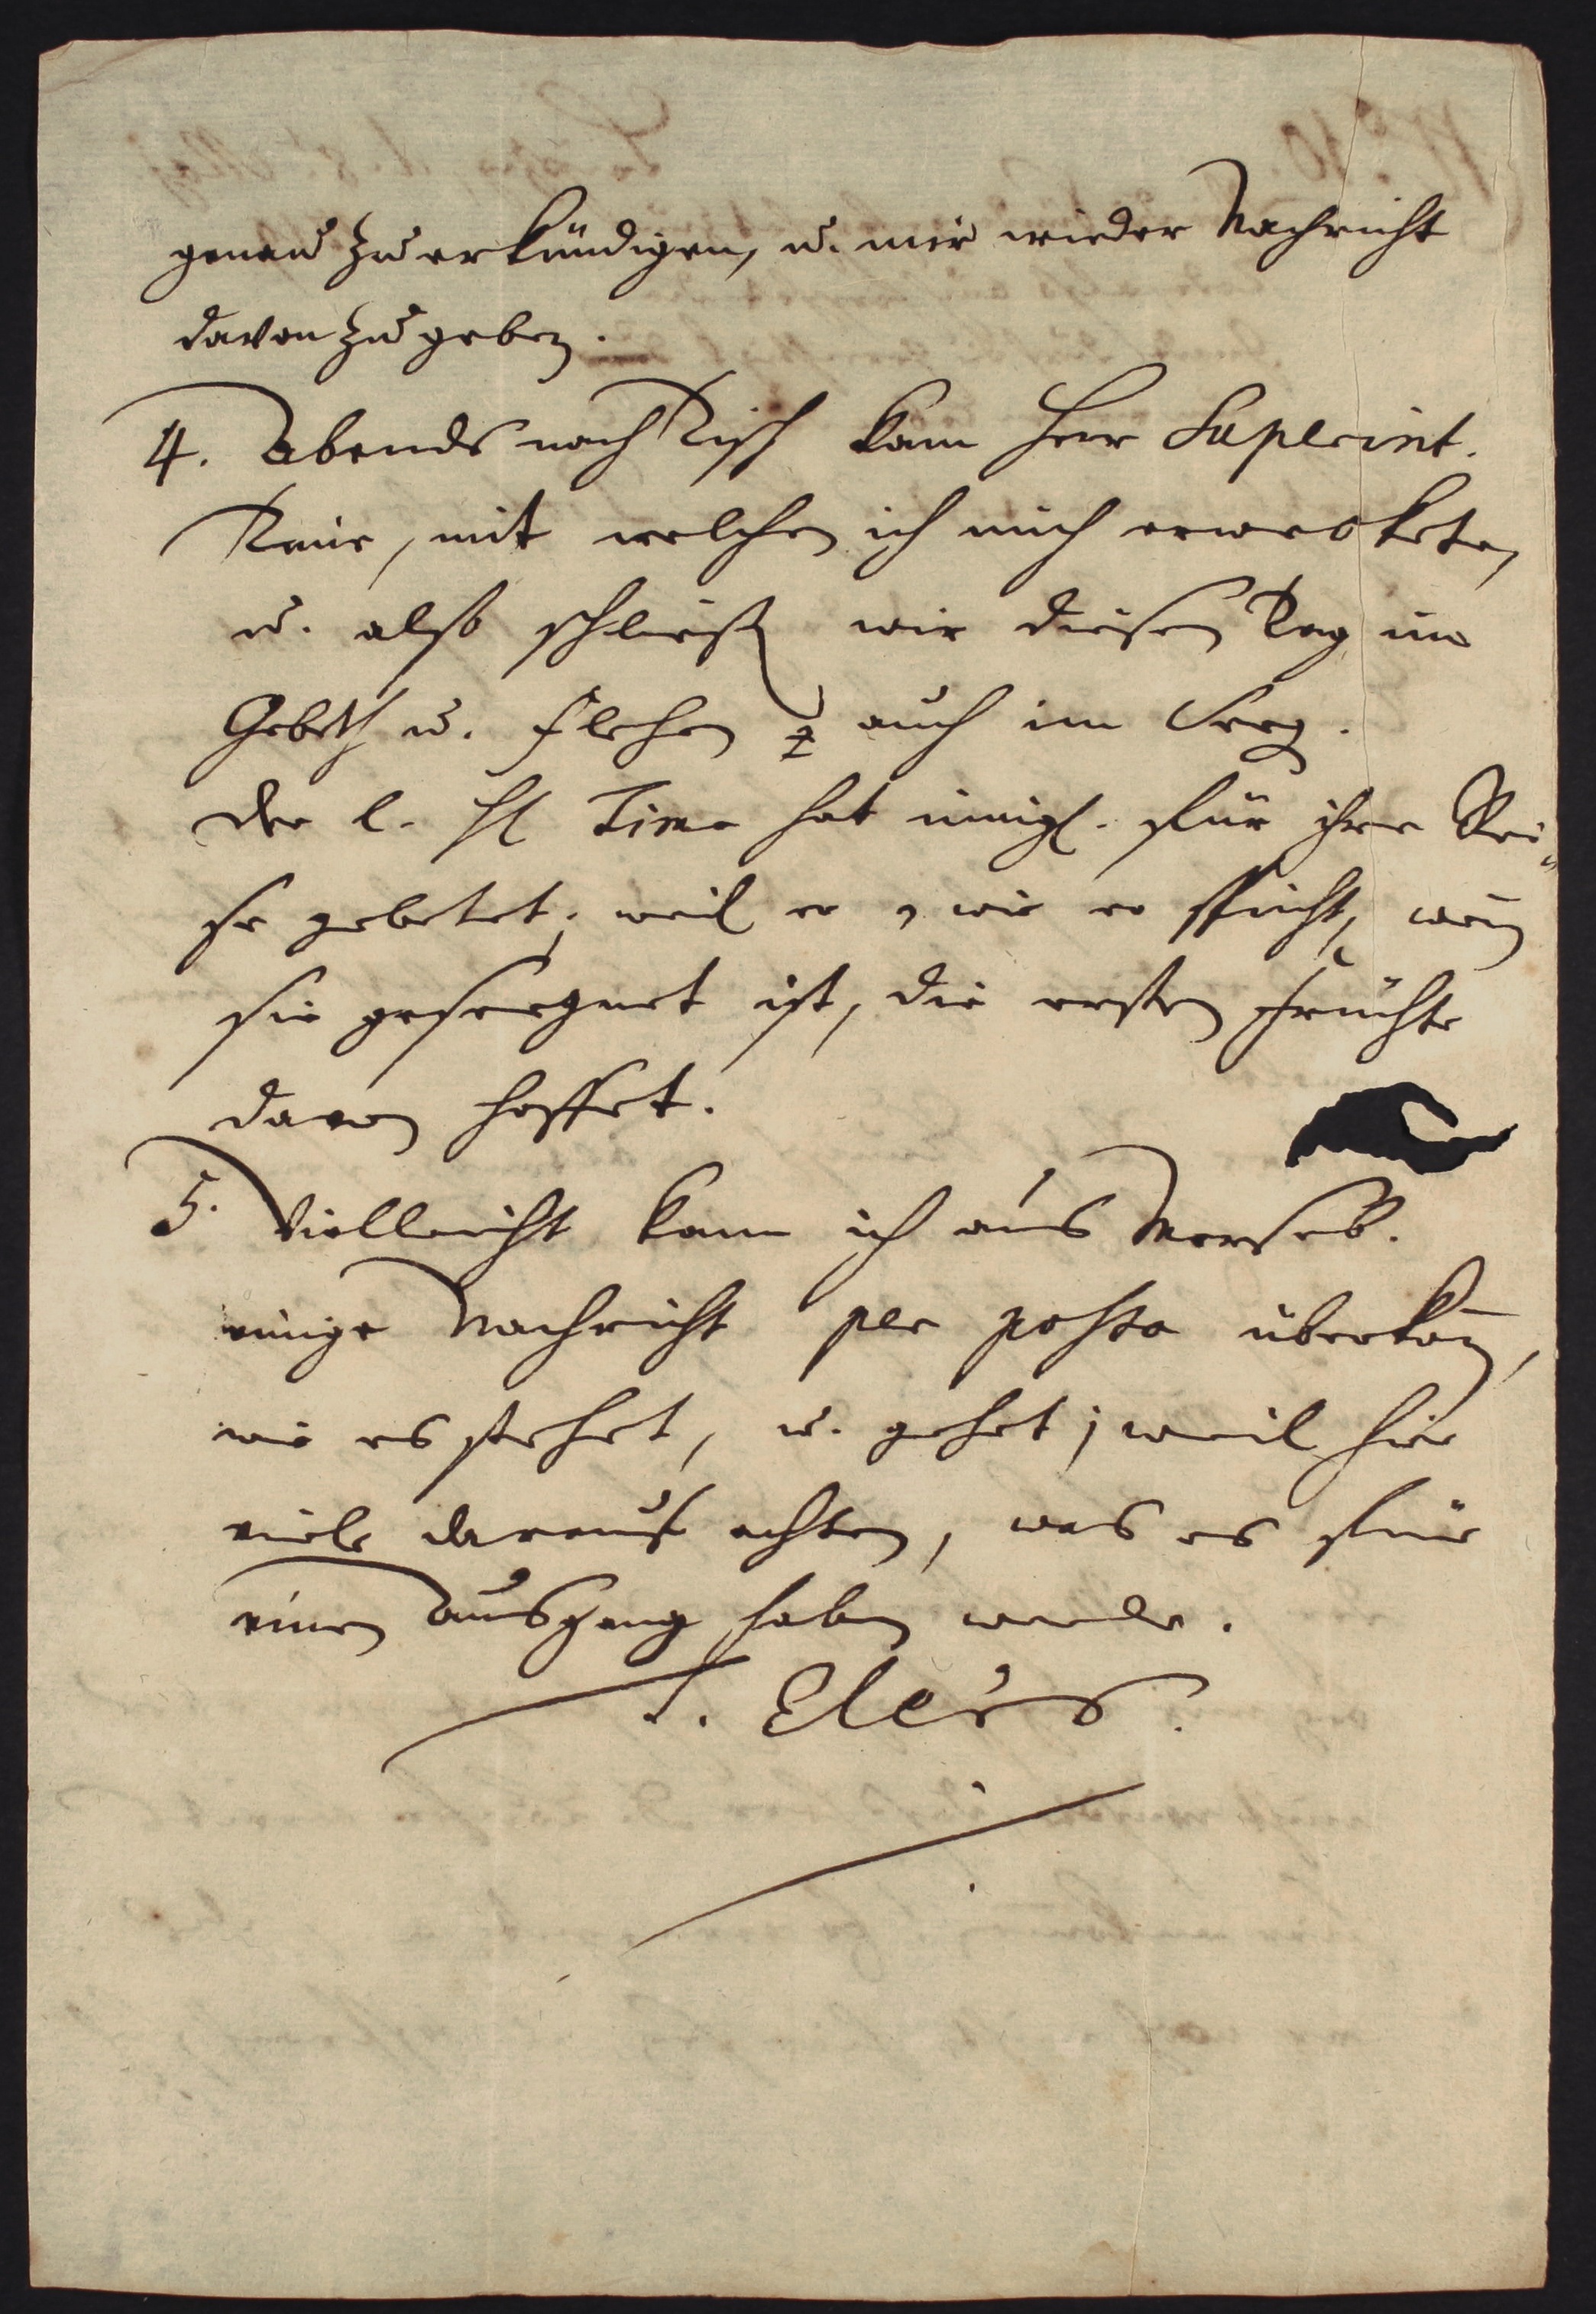 genau zu erkundigen, u. mir wieder Nachricht
davon zu geben.
4. Abends nach Tisch kam Herr Superint.
mit welchen ich mich erweckete,
u. also schließen wir diesen Tag im
Gebeth u. Flehen auch im Seeg.
der l. H. Time hat innigl. für ihre Rei-
se gebetet; weil er, wie er spricht, wenn
sie geseegnet ist, die ersten Früchte
davon hoffet.
5. Vielleicht kann ich aus Merseb.
einige Nachricht per posto überkom̅en,
wie es stehet, u. gehet; weil hier
viele darauf achten, was es für
einen Ausgang haben werde.
Elers.